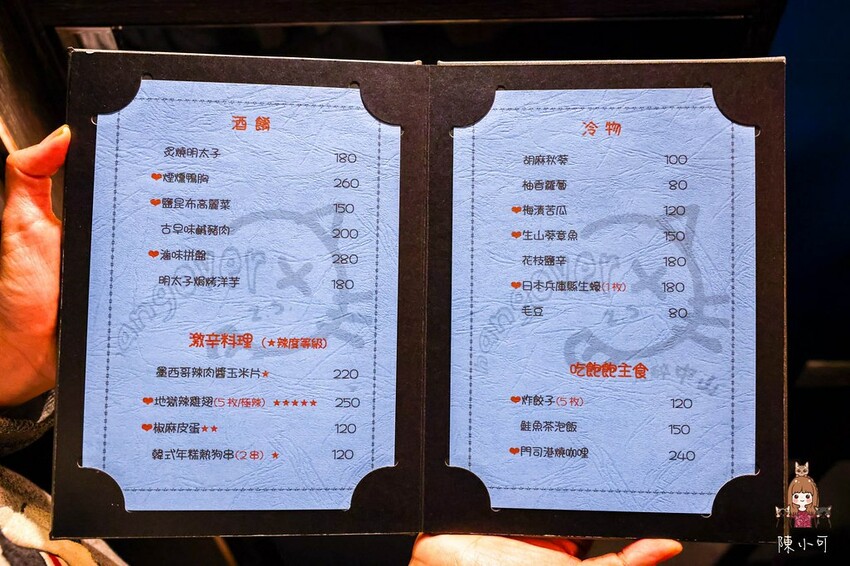 酒餚
炙燒明太子 180
❤煙燻鴨胸 260
❤鹽昆布高麗菜 150
古早味鹹豬肉 200
❤滷味拼盤 280
明太子焗烤洋芋 180
激辛料理 (★辣度等級)
墨西哥辣肉醬玉米片★ 220
❤地獄辣雞翅(5枚/極辣) ★★★★★ 250
❤椒麻皮蛋★★ 120
韓式年糕熱狗串(2串) ★ 120
hangover x
冷物
胡麻秋葵 100
柚香蘿蔔 80
❤梅漬苦瓜 120
❤生山葵章魚 150
花枝鹽辛 180
❤日本兵庫縣生蠔(1枚) 180
毛豆 80
吃飽飽主食
❤炸餃子(5枚) 120
鮭魚茶泡飯 150
❤門司港燒咖哩 240
hangover x
陳小可